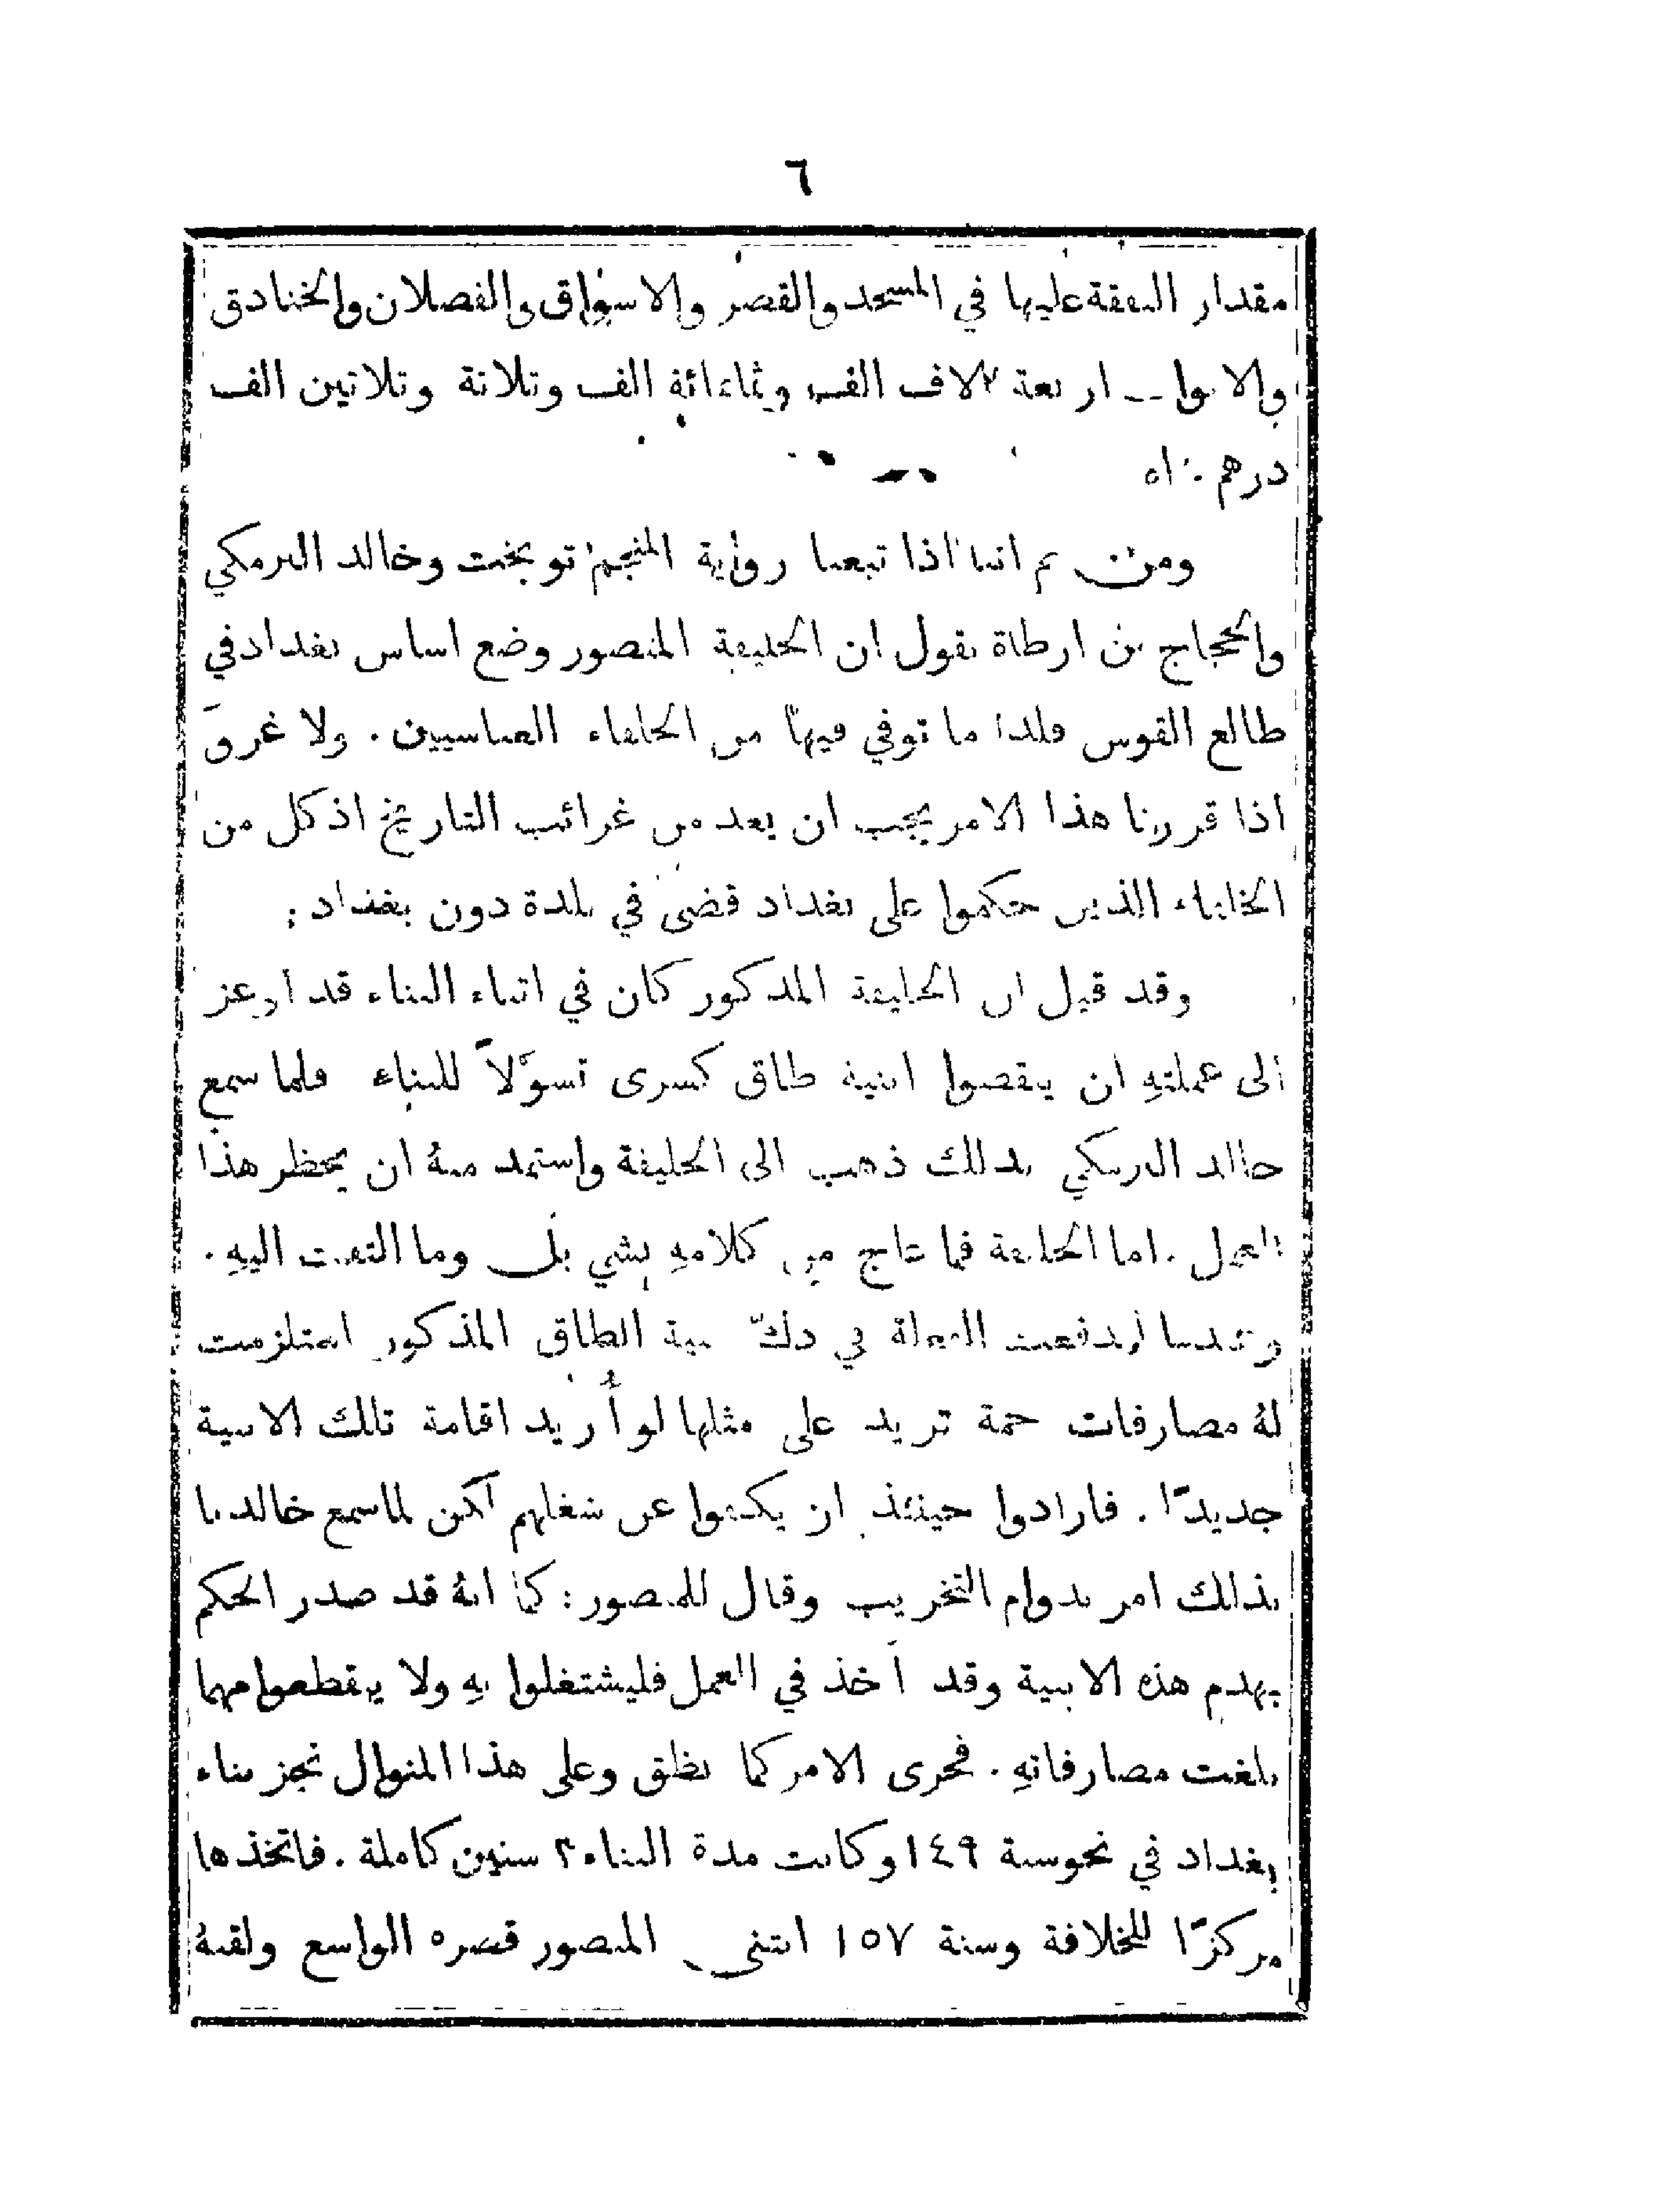 ٦
مقدار النفقة عليها في المسجد والقصر والاسواق والفصلان والخنادق
والابواب اربعة الاف الف وثمانمائة الف وثلاثة وثلاثين الف
درهم . اه
ومن ثم اننا اذا تبعنا رواية المنجم توبخت وخالد البرمكي
والحجاج بن ارطاة نقول ان الخليفة المنصور وضع اساس بغداد في
طالع القوس فلذا ما توفي فيها من الخلفاء العباسيين . ولا غرو
اذا قررنا هذا الامر يجب ان يعد من غرائب التاريخ اذ كل من
الخلفاء الذين حكموا على بغداد قضى في بلدة دون بغداد :
وقد قيل ان الخليفة المذكور كان في اثناء البناء قد اوعز
الى عملتهِ ان ينقضوا ابنية طاق كسرى تسوّلاً للبناء فلما سمع
خالد البرمكي بذلك ذهب الى الخليفة واستمد منهُ ان يحظر هذا
العمل . اما الخليفة فما عاج من كلامهِ بشي بل وما التفت اليهِ .
وعندما اندفعت العملة في دكّ بنية الطاق المذكور استلزمت
لهُ مصارفات جمة تزيد على مثلها لو أُريد اقامة تلك الابنية
جديدًا . فارادوا حينئذ ان يكفوا عن شغلهم لكن لما سمع خالد
بذلك امر بدوام التخريب وقال للمنصور : كما انهُ قد صدر الحكم
بهدم هذه الابنية وقد أخذ في العمل فليشتغلوا بهِ ولا ينقطعوا مهما
بلغت مصارفاتهِ . فجرى الامر كما نطق وعلى هذا المنوال نجز بناء
بغداد في نحو سنة ١٤٩ وكانت مدة البناء ٣ سنين كاملة . فاتخذها
مركزًا للخلافة وسنة ١٥٧ ابتنى المنصور قصره الواسع ولقبهُ